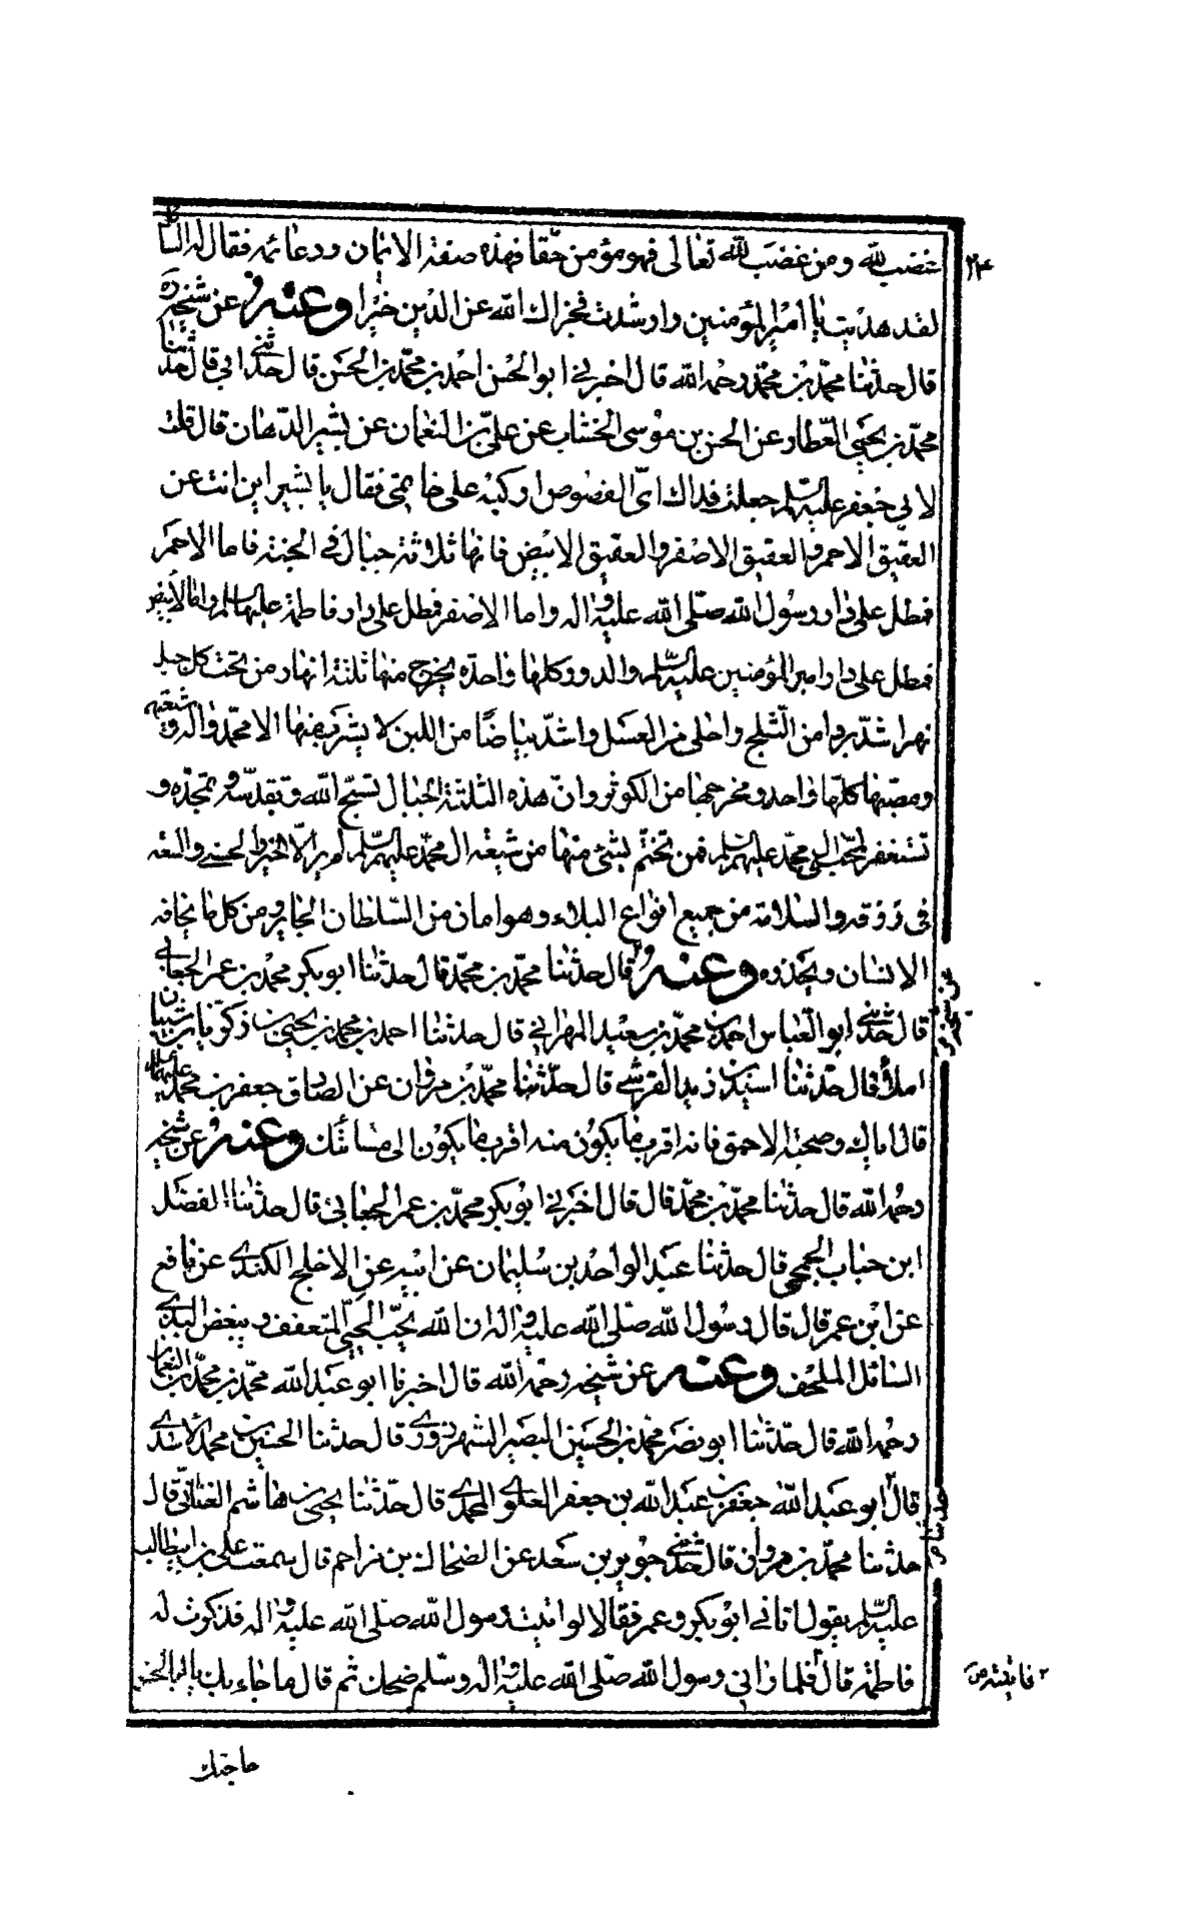 ٢٤
غضب لله ومن غضب لله تعالى فهو مؤمن حقا فهذه صفة الايمان ودعائمه فقال له السائل
لقد هديت يا امير المؤمنين وارشدت فجزاك الله عن الدين خيرا وعنه عن شيخه ره
قال حدثنا محمد بن محمد رحمه الله قال اخبرني ابو الحسن احمد بن محمد بن الحسن قال حدثني ابي قال حدثنا
محمد بن يحيى العطار عن الحسن بن موسى الخشاب عن علي بن النعمان عن بشير الدهان قال قلت
لابي جعفر عليه السلم جعلت فداك اي الفصوص اركبه على خاتمي فقال يا بشير اين انت عن
العقيق الاحمر والعقيق الاصفر والعقيق الابيض فانها ثلاثة جبال في الجنة فاما الاحمر
فمطل على دار رسول الله صلى الله عليه واله واما الاصفر فمطل على دار فاطمة عليها السلم واما الابيض
فمطل على دار امير المؤمنين عليه السلم والدور كلها واحدة يخرج منها ثلثة انهار من تحت كل جبل
نهر اشد بردا من الثلج واحلى من العسل واشد بياضا من اللبن لا يشرب منها الا محمد واله وشيعته
ومصبها كلها واحد ومخرجها من الكوثر وان هذه الثلثة الجبال تسبح الله وتقدسه وتمجده و
تستغفر لمحبي ال محمد عليهم السلم فمن تختم بشئ منها من شيعة ال محمد عليهم السلم لم ير الا الخير والحسنى والسعة
في رزقه والسلامة من جميع انواع البلاء وهو امان من السلطان الجاير ومن كل ما يخافه
الانسان ويحذره وعنه قال حدثنا محمد بن محمد قال حدثنا ابو بكر محمد بن عمر الجعابي
عن شيخه
قال حدثني ابو العباس احمد بن محمد بن سعيد الهمداني قال حدثنا احمد بن محمد بن يحيى بن زكريا بن شيبان
املاء قال حدثنا اسيد بن زيد القرشي قال حدثنا محمد بن مروان عن الصادق جعفر بن محمد عليهما السلم
قال اياك وصحبة الاحمق فانه اقرب ما يكون منه اقرب ما يكون الى مسائتك وعنه عن شيخه
رحمه الله قال حدثنا محمد بن محمد قال قال اخبرني ابو بكر محمد بن عمر الجعابي قال حدثنا الفضل
ابن حباب الجمحي قال حدثنا عبد الواحد بن سليمان عن ابيه عن الاجلح الكندي عن نافع
عن ابن عمر قال قال رسول الله صلى الله عليه واله ان الله يحب الحيي المتعفف ويبغض البذي
السائل الملحف وعنه عن شيخه رحمه الله قال اخبرنا ابو عبد الله محمد بن محمد بن النعمان
رحمه الله قال حدثنا ابو نصر محمد بن الحسين البصير الشهرزوري قال حدثنا الحسين بن محمد الاسدي
قال ابو عبد الله جعفر بن عبد الله بن جعفر العلوي المحمدي قال حدثنا يحيى بن هاشم الغساني قال
حدثنا محمد بن مروان قال حدثني جويبر بن سعد عن الضحاك بن مزاحم قال سمعت علي بن ابيطالب
عليه السلم يقول اتاني ابو بكر وعمر فقالا لو اتيت رسول الله صلى الله عليه واله فذكرت له
فاطمة قال فلما رانى رسول الله صلى الله عليه واله وسلم ضحك ثم قال ما جاء بك يا ابا الحسن
٢ فاتيته ص
حاجتك